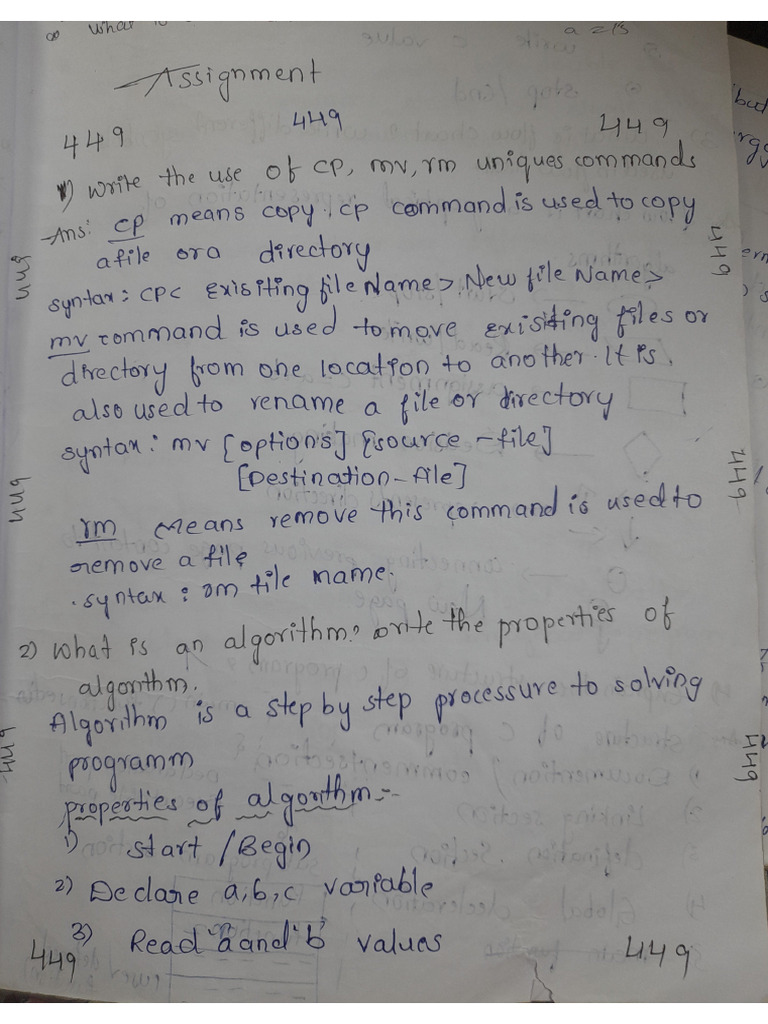 what is
a = 15
Assignment
449 449 449
1) write the use of cp, mv, rm uniques commands
Ans: cp means copy. cp command is used to copy
a file or a directory
449
449
syntax: cp< exisiting file Name> New file Name>
mv command is used to move exisiting files or
directory from one location to another. It is
also used to rename a file or directory
syntax: mv [options] [source-file]
[Destination-file]
449
449
rm means remove this command is used to
remove a file
syntax: rm file name.
2) what is an algorithm? write the properties of
algorithm.
Algorithm is a step by step processure to solving
programm
449
449
properties of algorithm:-
1) start / Begin
2) Declare a, b, c variable
3) Read "a and "b" values
449 449